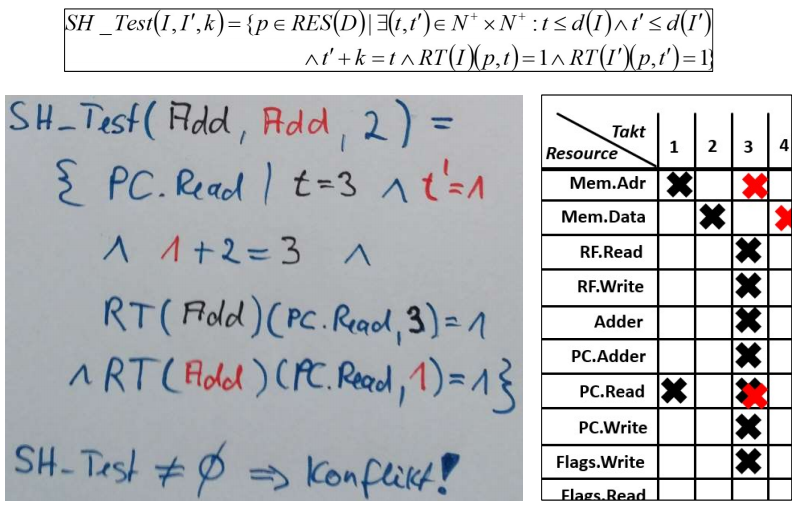 SH _Test(I, I′, k) = {p ∈ RES(D) | ∃(t, t′) ∈ N⁺ × N⁺ : t ≤ d(I) ∧ t′ ≤ d(I′)
∧ t′ + k = t ∧ RT(I)(p, t) = 1 ∧ RT(I′)(p, t′) = 1}
SH_Test( Add, Add, 2 ) =
{ PC.Read | t=3 ∧ t'=1
∧ 1+2=3 ∧
RT(Add)(PC.Read,3)=1
∧ RT(Add)(PC.Read,1)=1}
SH_Test ≠ ∅ ⇒ Konflikt!
Takt
Resource 1 2 3 4
Mem.Adr
Mem.Data
RF.Read
RF.Write
Adder
PC.Adder
PC.Read
PC.Write
Flags.Write
Flags.Read